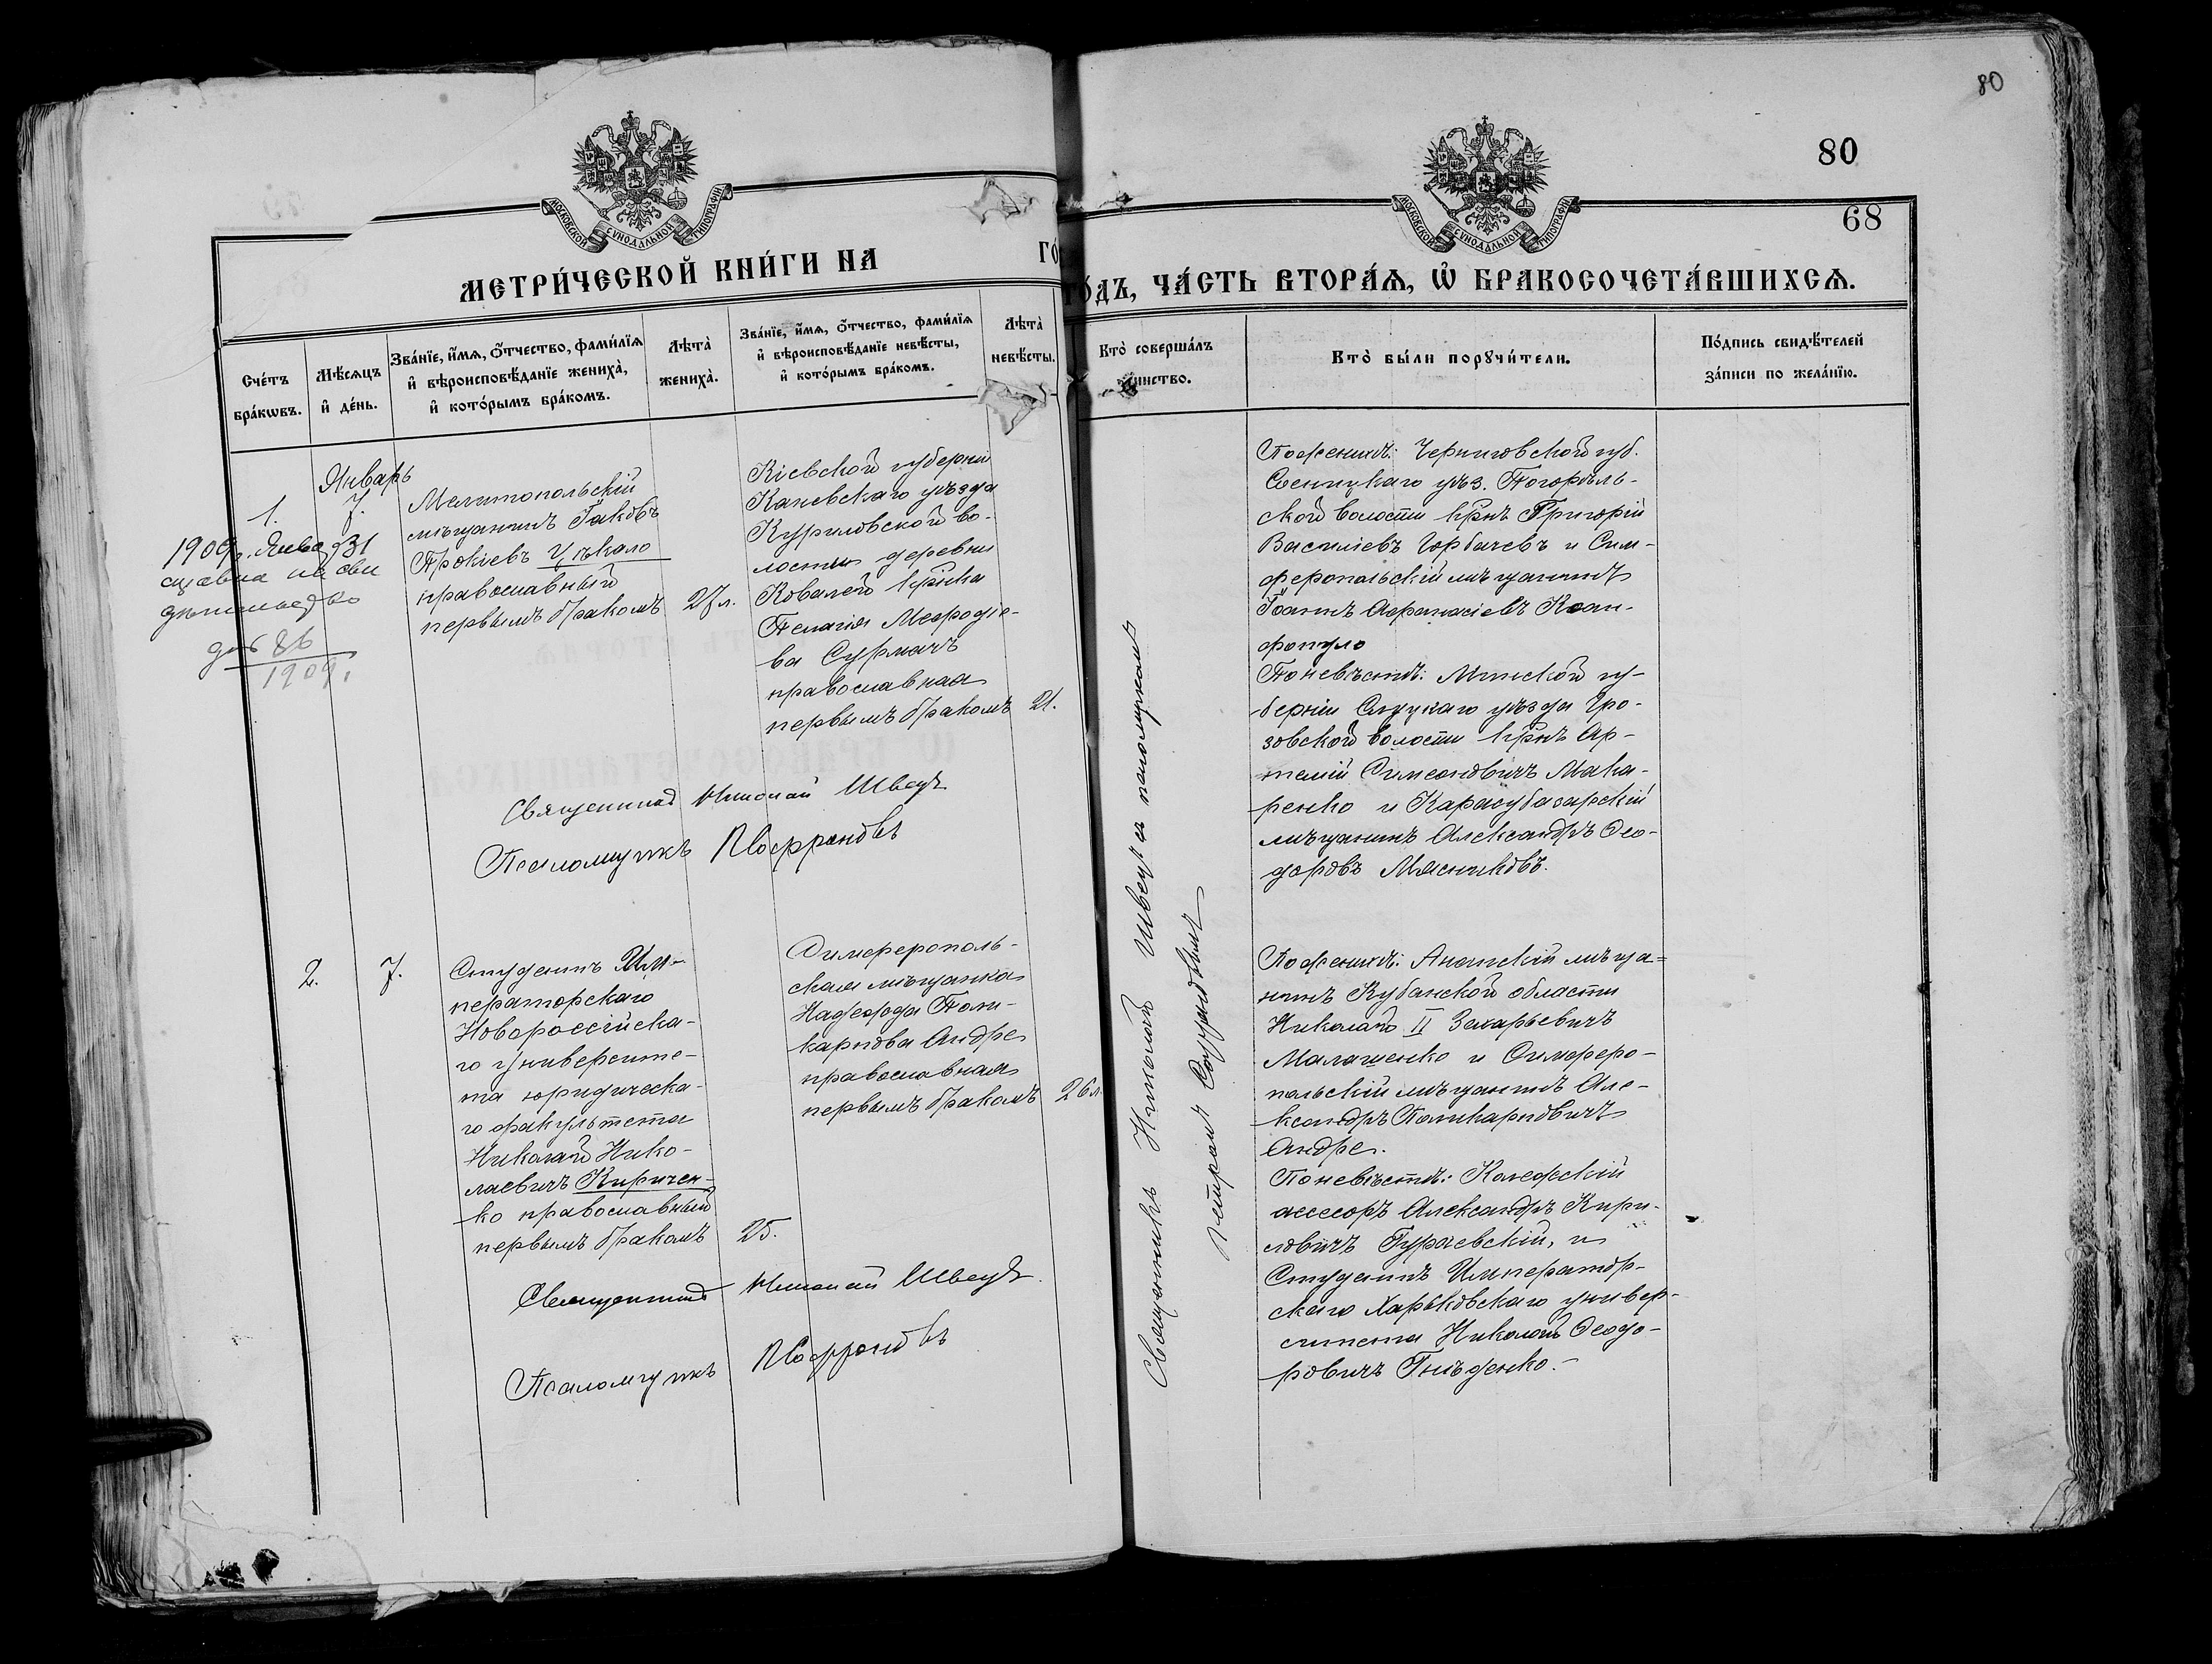 80
80
68
МОСКОВСКОЙ СУНОДАЛЬНОЙ ТИПОГРАФІИ
МОСКОВСКОЙ СУНОДАЛЬНОЙ ТИПОГРАФІИ
МЕТРИ́ЧЕСКОЙ КНИ́ГИ НА ГО́ДЪ, ЧА́СТЬ ВТОРА́Ѧ, Ѡ҆ БРАКОСОЧЕТА́ВШИХСѦ.
Сче́тъ
бра́кѡвъ.
Мѣ́сѧцъ
и҆ де́нь.
Зва́нїе, и҆́мѧ, ѻ҆́тчество, фами́лїѧ
и҆ вѣроисповѣ́данїе жениха̀,
и҆ кото́рымъ бра́комъ.
Лѣта̀
жениха̀.
Зва́нїе, и҆́мѧ, ѻ҆́тчество, фами́лїѧ
и҆ вѣроисповѣ́данїе невѣ́сты,
и҆ кото́рымъ бра́комъ.
Лѣта̀
невѣ́сты.
Кто̀ соверша́лъ
таинство.
Кто̀ бы́ли порꙋчи́тели.
По́дпись свидѣ́телей
за́писи по жела́нїю.
Январь
1.
7.
1909 г. Янв 31
86
1909.
Мелитопольскій
мѣщанинъ Іаковъ
Прокіевъ Цѣкало
православный
первымъ бракомъ
27 л.
Кіевской губерніи
Каневскаго уѣзда
Куриловской во-
лости деревни
Ковалей кр̃нка
Пелагія Меѳодіе-
ва Сурмачъ
православная
первымъ бракомъ
21.
Священникъ Николай Швецъ
Псаломщикъ
Священникъ Николай Швецъ съ псаломщикомъ
Поженихѣ: Черниговской губ.
Сосницкаго уѣз. Погорѣль-
ской волости кр̃нъ Григорій
Василіевъ Горбачевъ и Сим-
феропольскій мѣщанинъ
Іоаннъ Аѳанасіевъ Ксан-
фопуло
Поневѣстѣ: Минской гу-
берніи Слуцкаго уѣзда Гро-
зовской волости кр̃нъ Ар-
темій Симеоновичъ Мака-
ренко и Карасубазарскій
мѣщанинъ Александръ Ѳео-
доровъ Мясниковъ.
2.
7.
Студентъ Им-
ператорскаго
Новороссійска-
го университе-
та юридическа-
го факультета
Николай Нико-
лаевичъ Киричен-
ко православный
первымъ бракомъ
25.
Симферополь-
ская мѣщанка
Надежда Поли-
карпова Андре
православная
первымъ бракомъ
26 л.
Священникъ Николай Швецъ.
Псаломщикъ
Поженихѣ: Анапскій мѣща-
нинъ Кубанской области
Николай II Захарьевичъ
Малашенко и Симферо-
польскій мѣщанинъ Але-
ксандръ Поликарповичъ
Андре.
Поневѣстѣ: Коллежскій
ассесоръ Александръ Кири-
ловичъ Гураевскій, и
Студентъ Император-
скаго Харьковскаго универ-
ситета Николай Ѳеодо-
ровичъ Гнѣденко.-